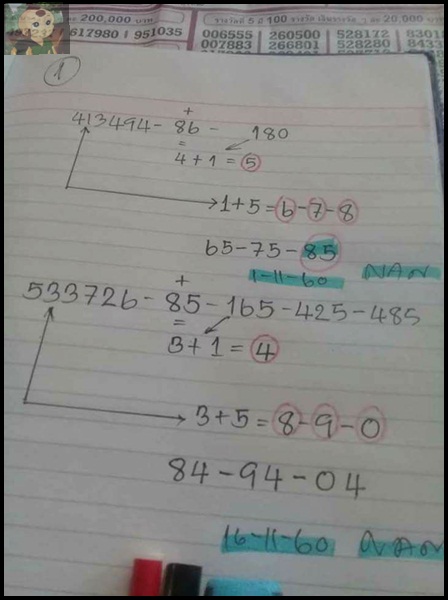 200,000 บาท
617980 951035
รางวัลที่ 5 มี 100 รางวัล เงินรางวัลๆละ 20,000 บาท
006555 260500 528172
007883 266801 528280
1
413494 - 86 - 180
+
=
4 + 1 = 5
1 + 5 = 6 - 7 - 8
65 - 75 - 85
1-11-60 NAN
+
533726 - 85 - 165 - 425 - 485
=
3 + 1 = 4
3 + 5 = 8 - 9 - 0
84 - 94 - 04
16-11-60 NAN